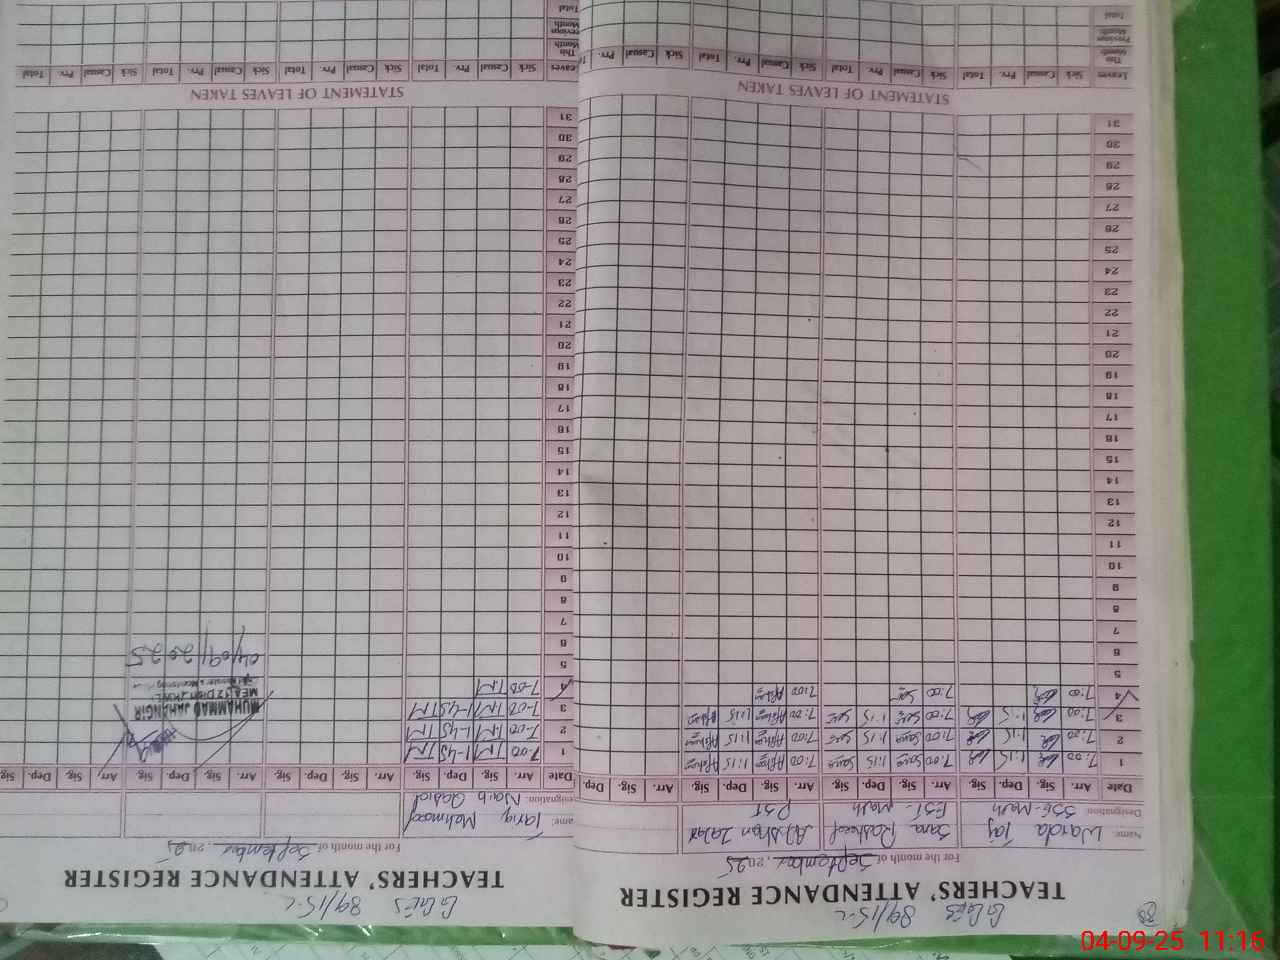 GGES 89/15-L
TEACHERS' ATTENDANCE REGISTER
For the month of September, 2025
Name: Warda Taj Sana Rasheed Afshan Zafar
Designation: SSE-Math EST-Math PST
Date Arr. Sig. Dep. Sig. Arr. Sig. Dep. Sig. Arr. Sig. Dep. Sig. Arr. Sig. Dep.
1 7:00 1:15 7:00 Sana 1:15 Sana 7:00 Afshan 1:15 Afshan
2 7:00 1:15 7:00 Sana 1:15 Sana 7:00 Afshan 1:15 Afshan
3 7:00 1:15 7:00 Sana 1:15 Sana 7:00 Afshan 1:15 Afshan
4 7:00 7:00 Sana 7:00 Afshan
5
6
7
8
9
10
11
12
13
14
15
16
17
18
19
20
21
22
23
24
25
26
27
28
29
30
31
STATEMENT OF LEAVES TAKEN
Leaves Sick Casual Prv. Total Sick Casual Prv. Total Sick Casual Prv. Total Sick Casual Prv.
This Month
Previous Month
Total
GGES 89/15-L
TEACHERS' ATTENDANCE REGISTER
For the month of September 2025
Name: Tariq Mehmood
Designation: Naib Qasid
Date Arr. Sig. Dep. Sig. Arr. Sig. Dep. Sig. Arr. Sig. Dep. Sig. Arr. Sig. Dep. Sig.
1 7-00 TM 1-45 TM
2 7-00 TM 1-45 TM
3 7-00 TM 1-45 TM
4 7-00 TM
MUHAMMAD JAHANGIR
04/09/2025
5
6
7
8
9
10
11
12
13
14
15
16
17
18
19
20
21
22
23
24
25
26
27
28
29
30
31
STATEMENT OF LEAVES TAKEN
Leaves Sick Casual Prv. Total Sick Casual Prv. Total Sick Casual Prv. Total Sick Casual Prv. Total
This Month
Previous Month
Total
04-09-25 11:16